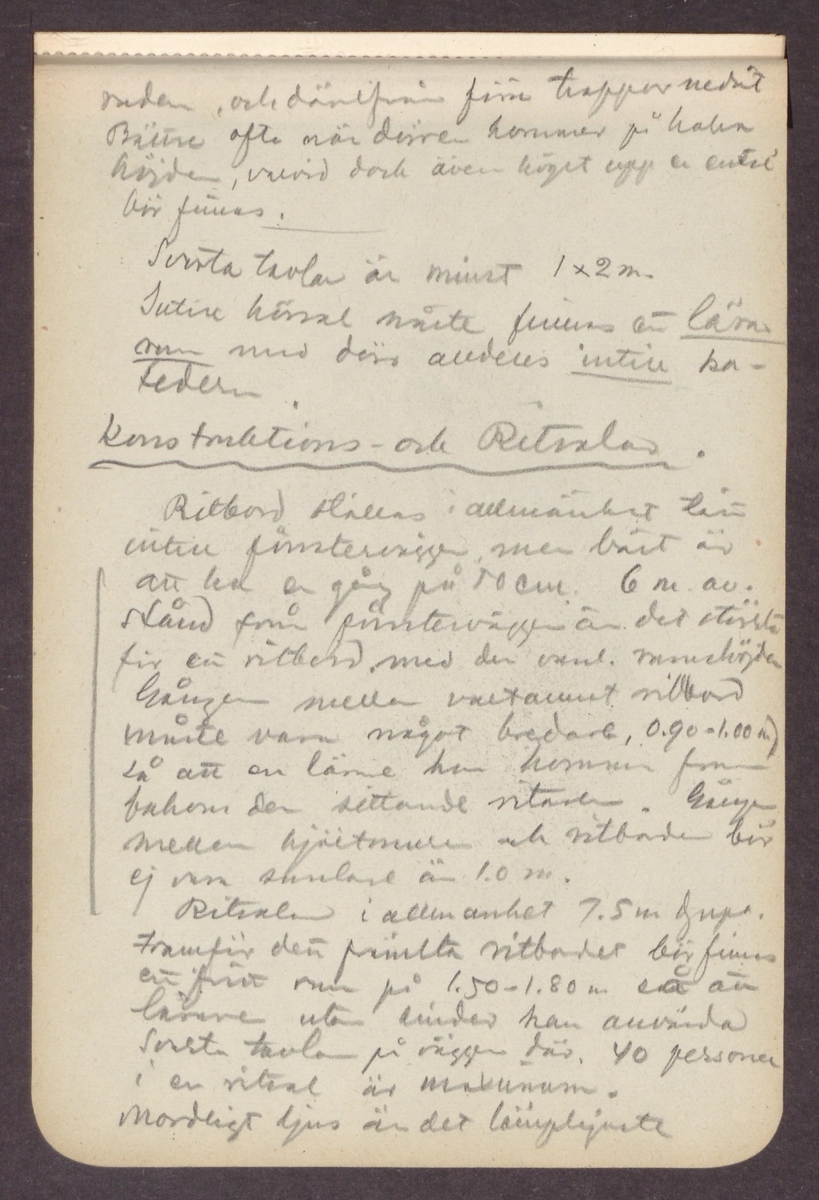 raden, och därifrån föra trappor nedåt
Bättre ofta när dörren kommer på halva
höjden, varvid dock även högst upp en entré
bör finnas.
Svarta tavlan är minst 1x2 m.
Intill hörsal måste finnas ett lärar
rum med dörr alldeles intill ka-
tedern.
Konstruktions- och Ritsalar.
Ritbord ställas i allmänhet tätt
intill fönsterväggen, men bäst är
att ha en gång på 50 cm. 6 m. av-
stånd från fönsterväggen är det största
för ett ritbord, med den vanl. rumshöjden
Gången mellan vartannat ritbord
måste vara något bredare, 0.90-1.00 m)
så att en lärare kan komma fram
bakom den sittande ritaren. Gången
mellan hjärtmuren och ritborden bör
ej vara smalare än 1.0 m.
Ritsalar i allmänhet 7.5 m djupa.
Framför det främsta ritbordet bör finnas
ett fritt rum på 1.50-1.80 m så att
lärare utan hinder kan använda
svarta tavlan på väggen där. 40 personer
i en ritsal är maximum.
Nordligt ljus är det lämpligaste